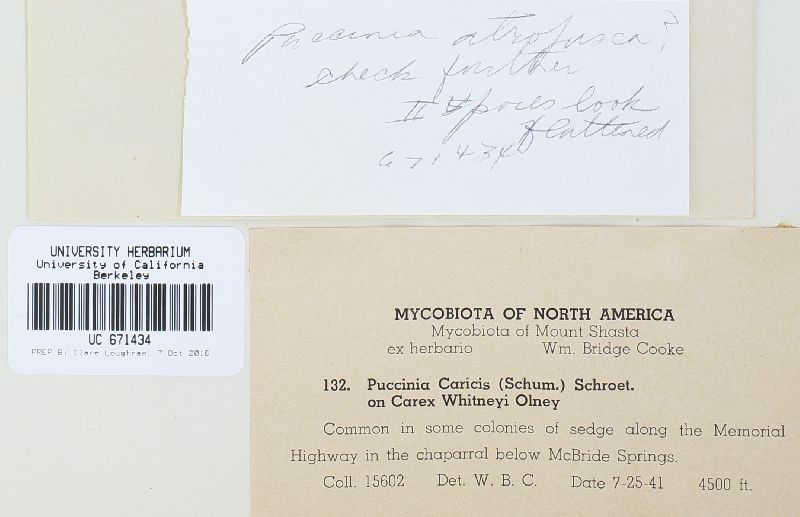 Puccinia atrofusca?
check further
II spores look
flattened
671434
UNIVERSITY HERBARIUM
University of California
Berkeley
UC 671434
PREP BY Clare Loughran, 7 Oct 2016
MYCOBIOTA OF NORTH AMERICA
Mycobiota of Mount Shasta
ex herbario Wm. Bridge Cooke
132. Puccinia Caricis (Schum.) Schroet.
on Carex Whitneyi Olney
Common in some colonies of sedge along the Memorial
Highway in the chaparral below McBride Springs.
Coll. 15602 Det. W. B. C. Date 7-25-41 4500 ft.